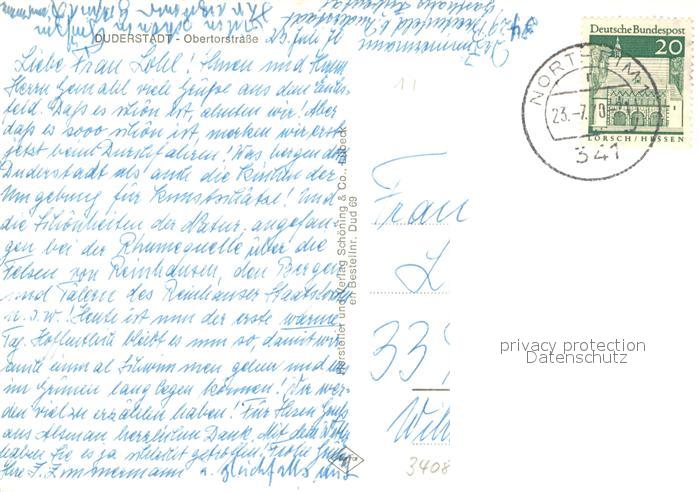 DUDERSTADT - Obertorstraße
23. Juli 70
Liebe Frau Lohl! Ihnen und Ihrem
Herrn Gemahl viele Grüße aus dem Eichs-
feld. Daß es schön ist, ahnten wir! Aber
daß es sooo schön ist merken wir erst
jetzt beim Durchfahren! Was bergen
Duderstadt als auch die Kirchen der
Umgebung für Kunstschätze! Und
die Schönheiten der Natur, angefan-
gen bei der Rhumequelle über die
Felsen von Reinhausen, den Bergen
und Tälern des Reinhäuser
u.s.w.! Heute ist nun der erste warme
Tag. Hoffentlich bleibt es nun so, damit wir
einmal Schwimmen gehen und
im Grünen lang liegen können! Wir wer-
den viel zu erzählen haben! Für Ihren Gruß
aus herzlichen Dank. Mit dem
haben Sie es ja schlecht getroffen! Frohe Grüße
Ihre F. Zimmermann u.
Hersteller und Verlag Schöning & Co., Lübeck
Bestellnr. Dud 69
Deutsche Bundespost
20
LORSCH/HESSEN
NORTHEIM 1
23.-7.70
341
11
Frau
L
33
Wil
3408
privacy protection
Datenschutz